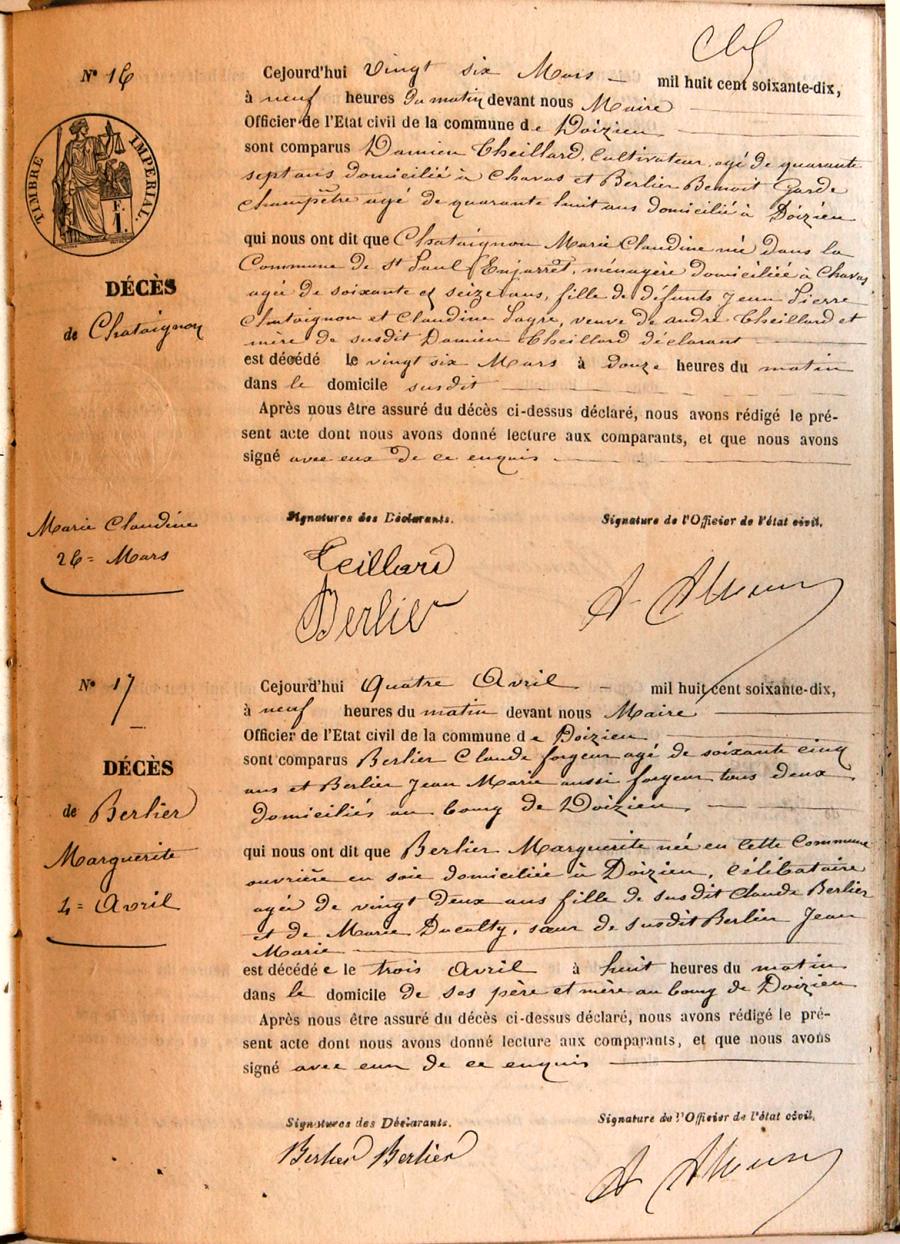 Nº 16
TIMBRE IMPERIAL.
F.
1.
DÉCÈS
de Chataignon
Marie Claudine
26 = Mars
Cejourd'hui vingt six Mars mil huit cent soixante-dix,
à neuf heures du matin devant nous Maire
Officier de l'Etat civil de la commune de Doizieu
sont comparus Damien Theillard, Cultivateur, agé de quarante
sept ans domicilié à Chavas et Berlier Benoit Garde
champêtre agé de quarante huit ans domicilié à Doizieu
qui nous ont dit que Chataignon Marie Claudine née dans la
Commune de St Paul Enjarret, ménagère domiciliée à Chavas,
agée de soixante et seize ans, fille de défunts Jean Pierre
Chataignon et Claudine, veuve de andré Theillard et
mère de susdit Damien Theillard déclarant
est décédé le vingt six Mars à douze heures du matin
dans le domicile susdit
Après nous être assuré du décès ci-dessus déclaré, nous avons rédigé le pré-
sent acte dont nous avons donné lecture aux comparants, et que nous avons
signé avec eux de ce enquis
Signatures des Déclarants. Signature de l'Officier de l'état civil.
Teillard
Berlier
Nº 17
DÉCÈS
de Berlier
Marguerite
4 = Avril
Cejourd'hui Quatre Avril mil huit cent soixante-dix,
à neuf heures du matin devant nous Maire
Officier de l'Etat civil de la commune de Doizieu
sont comparus Berlier Claude forgeur agé de soixante cinq
ans et Berlier Jean Marie aussi forgeur tous deux
domiciliés au bourg de Doizieu
qui nous ont dit que Berlier Marguerite née en Cette Commune
ouvrière en soie domiciliée à Doizieu, Célibataire
agée de vingt deux ans fille de susdit Claude Berlier
et de Marie, sœur de susdit Berlier Jean
Marie
est décédé e le trois Avril à huit heures du matin
dans le domicile de ses père et mère au bourg de Doizieu
Après nous être assuré du décès ci-dessus déclaré, nous avons rédigé le pré-
sent acte dont nous avons donné lecture aux comparants, et que nous avons
signé avec eux de ce enquis
Signatures des Déclarants. Signature de l'Officier de l'état civil.
Berlier Berlier